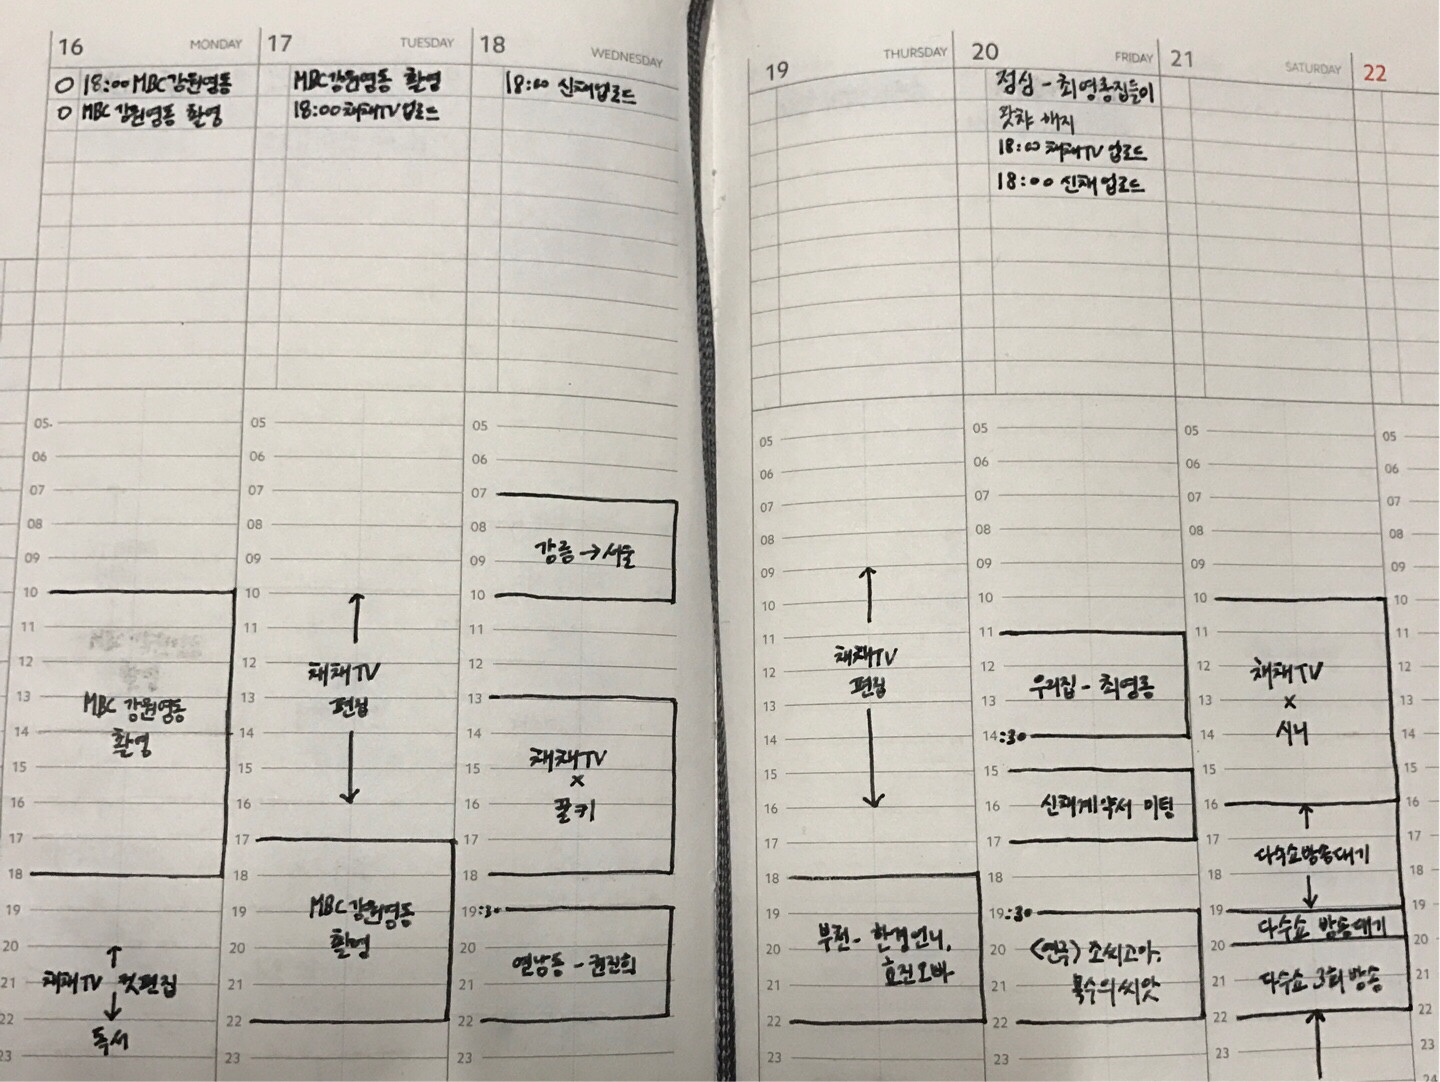 16 MONDAY
18:00 MBC강원영동
MBC 강원영동 촬영
05
06
07
08
09
10
11
12
13
14
15
16
17
18
19
20
21
22
23
MBC 강원영동
촬영
채채TV 컷편집
독서
17 TUESDAY
MBC강원영동 촬영
18:00 채채TV 업로드
05
06
07
08
09
10
11
12
13
14
15
16
17
18
19
20
21
22
23
채채TV
편집
MBC 강원영동
촬영
18 WEDNESDAY
18:00 신채업로드
05
06
07
08
09
10
11
12
13
14
15
16
17
18
19:30
20
21
22
23
강릉→서울
채채TV
×
꼴키
연남동 - 권진희
19 THURSDAY
05
06
07
08
09
10
11
12
13
14
15
16
17
18
19
20
21
22
23
채채TV
편집
부천 - 한경언니,
효진오빠
20 FRIDAY
점심 - 최영롱집들이
왓챠 해지
18:00 채채TV 업로드
18:00 신채 업로드
05
06
07
08
09
10
11
12
13
14:30
15
16
17
18
19:30
20
21
22
23
우리집 - 최영롱
신채계약서 미팅
<연극> 조씨고아,
복수의 씨앗
21 SATURDAY
05
06
07
08
09
10
11
12
13
14
15
16
17
18
19
20
21
22
23
채채TV
×
시니
다수쇼방송대기
다수쇼 방송대기
다수쇼 3회 방송
22
05
06
07
08
09
10
11
12
13
14
15
16
17
18
19
20
21
22
23
24